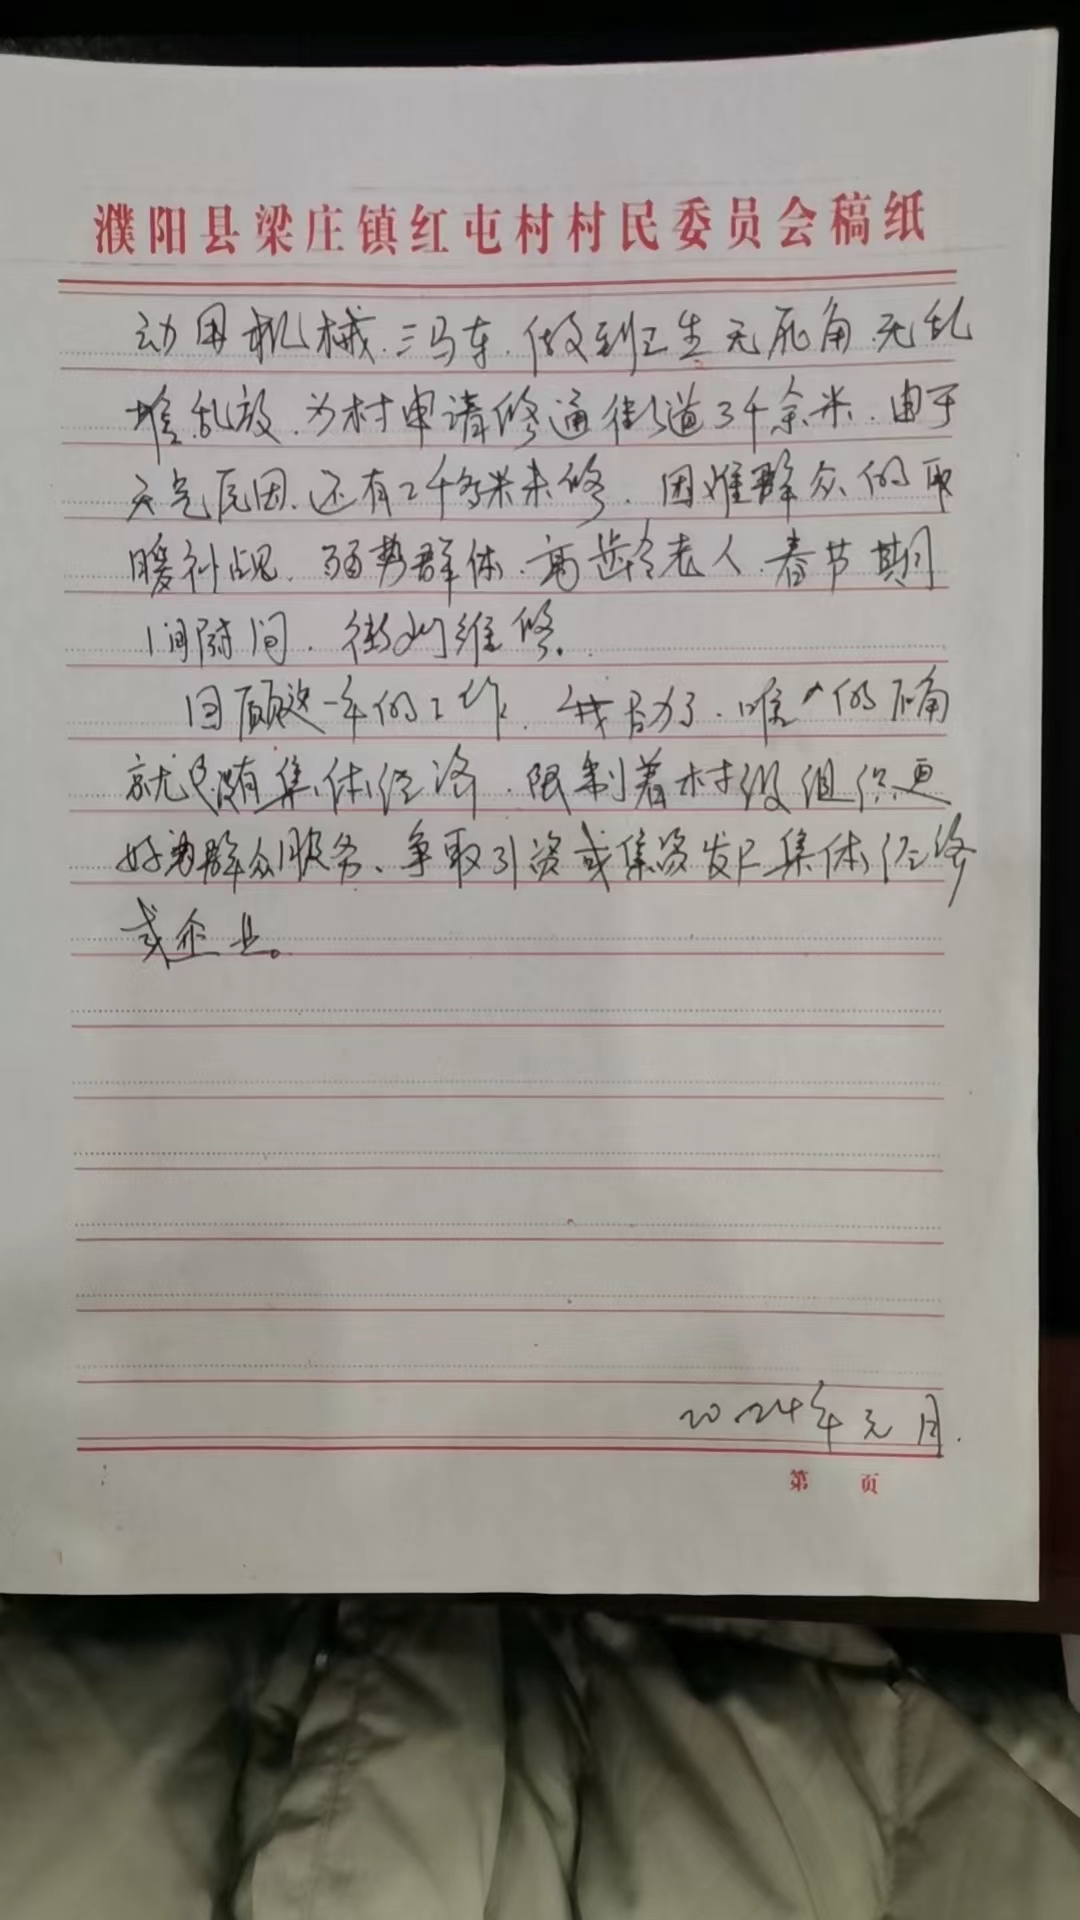 濮阳县梁庄镇红屯村村民委员会稿纸
动用机械.三马车.做到卫生无死角.无乱
堆乱放.为村申请修通街道3千余米.由于
天气原因.还有2千多米未修.困难群众的取
暖补贴.弱势群体.高龄老人.春节期
间慰问.街灯维修.
回顾这一年的工作.我尽力了.唯一的
就是没有集体经济.限制着村级组织更
好为群众服务.争取引资或集资发展集体经济
或企业。
2024年元月.
第 页